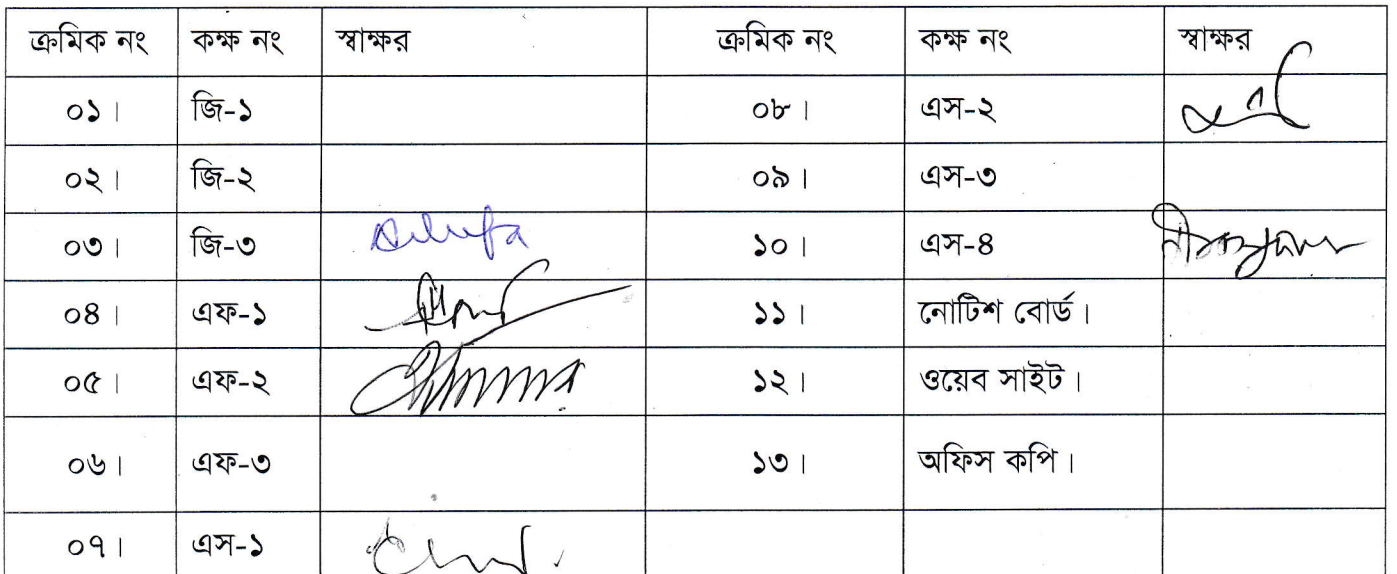 ক্রমিক নং কক্ষ নং স্বাক্ষর ক্রমিক নং কক্ষ নং স্বাক্ষর
০১। জি-১ ০৮। এস-২
০২। জি-২ ০৯। এস-৩
০৩। জি-৩ Dilufa ১০। এস-৪
০৪। এফ-১ ১১। নোটিশ বোর্ড।
০৫। এফ-২ ১২। ওয়েব সাইট।
০৬। এফ-৩ ১৩। অফিস কপি।
০৭। এস-১